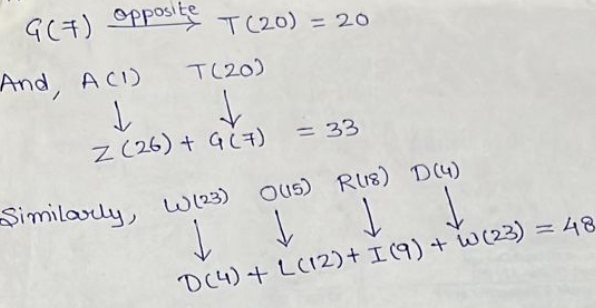 G(7) opposite → T(20) = 20
And, A(1) T(20)
↓ ↓
Z(26) + G(7) = 33
Similarly, W(23) O(15) R(18) D(4)
↓ ↓ ↓ ↓
D(4) + L(12) + I(9) + W(23) = 48